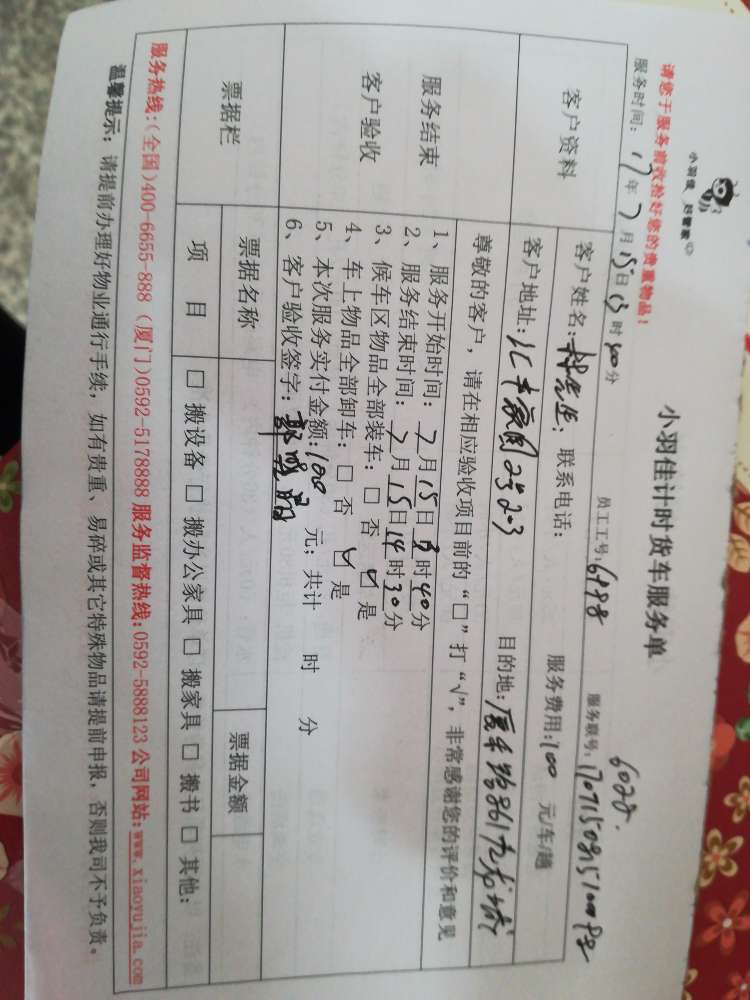 小羽佳计时货车服务单
小羽佳 好管家
请您于服务前收拾好您的贵重物品!
6028.
服务时间: 17年7月15日13时40分 员工工号: 6198 服务联号:
客户资料
客户姓名: 联系电话: 服务费用:100 元/车/趟
客户地址: 汇丰家园252-3 目的地: 厦禾路861九龙城
尊敬的客户,请在相应验收项目前的“□”打“√”,非常感谢您的评价和意见
服务结束
客户验收
1、服务开始时间: 7月15日13时40分
2、服务结束时间: 7月15日14时30分
3、候车区物品全部装车: □ 否 √ 是
4、车上物品全部卸车: □ 否 √ 是
5、本次服务实付金额:100 元; 共计 时 分
6、客户验收签字:
票据栏
票据名称 票据金额
项 目 □ 搬设备 □ 搬办公家具 □ 搬家具 □ 搬书 □ 其他:
服务热线:(全国)400-6655-888 (厦门)0592-5178888 服务监督热线:0592-5888123 公司网站:www.xiaoyujia.com
温馨提示: 请提前办理好物业通行手续,如有贵重、易碎或其它特殊物品请提前申报,否则我司不予负责。